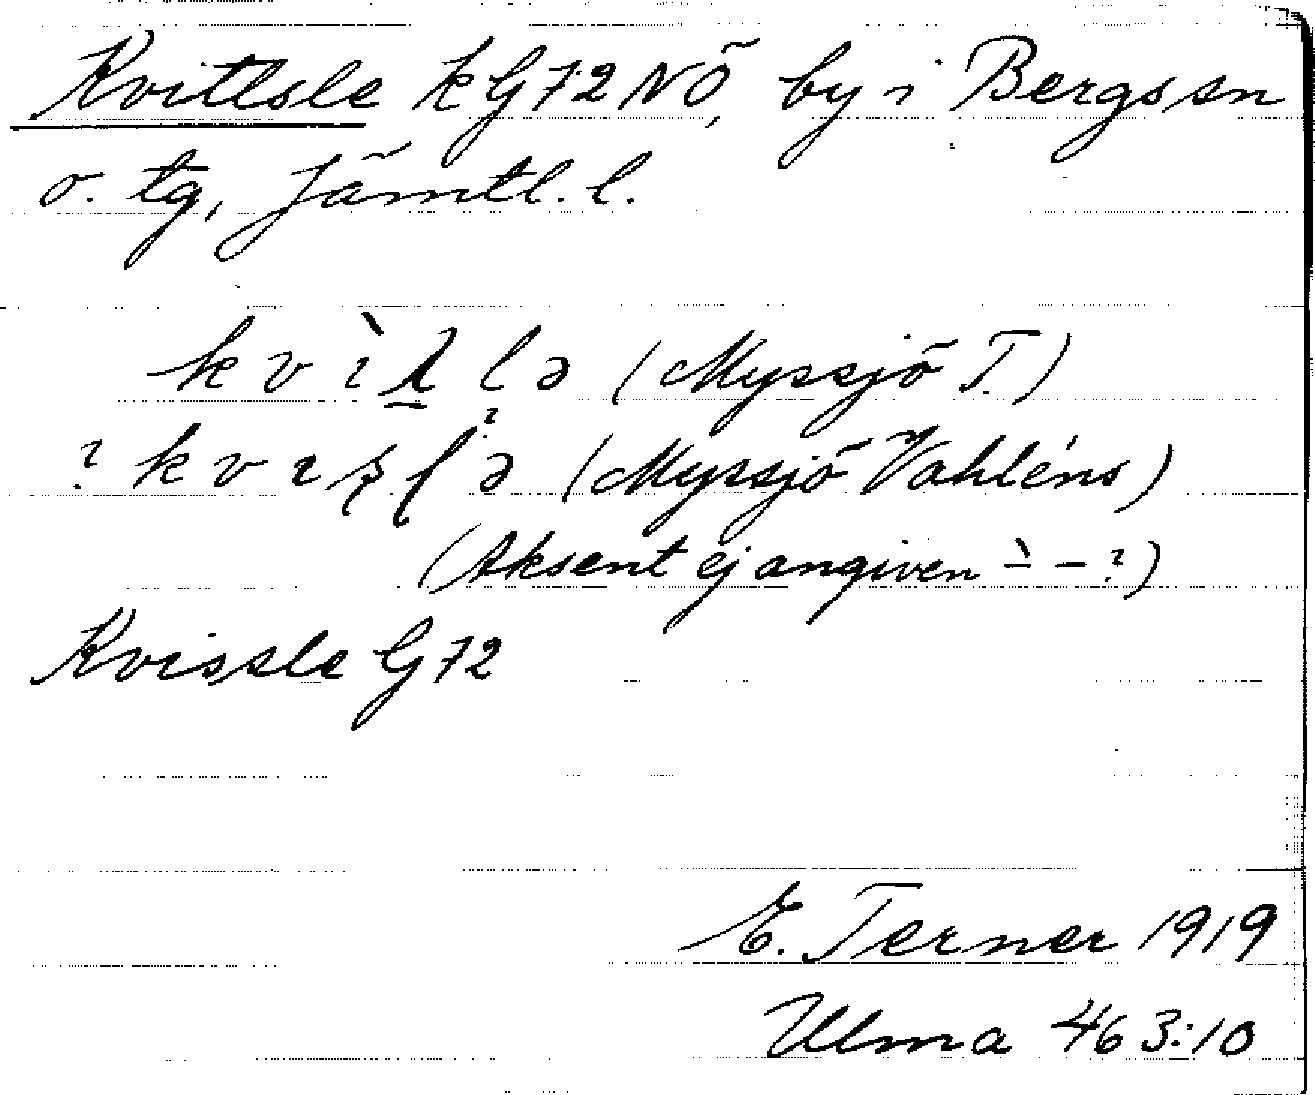 Kvitlsle k G72NÖ, by i Bergs sn
o. tg, Jämtl. l.
k v ı̀ λ l ə (Myssjö T.)
? k v ı ʂ ɭ ə (Myssjö Vahléns)
(Aksent ej angiven ̀ – – ?)
Kvissle G72
E. Terner 1919
Ulma 463:10